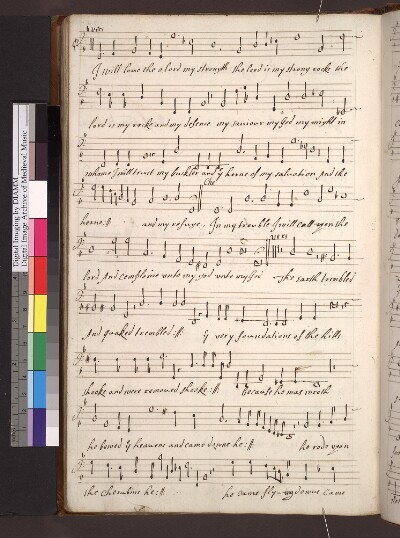 vers
I will love the o lord my strength the lord is my strong rocke the
lord is my rocke and my defence my saviour my god my might in
whome I will trust my buckler and y horne of my salvation and the
Cho
horne :||: and my refuge. In my trouble I will call upon the
vers
lord And complaine unto my god unto my god The earth trembled
And quaked trembled :||: y very foundations of the hills
shooke and were removed shooke :||: because he was wroth
he bowed y heavens and came downe he :||: he rode upon
the cherubins he :||: he came flying downe came
Digital Imaging by DIAMM
Digital Image Archive of Medieval Music